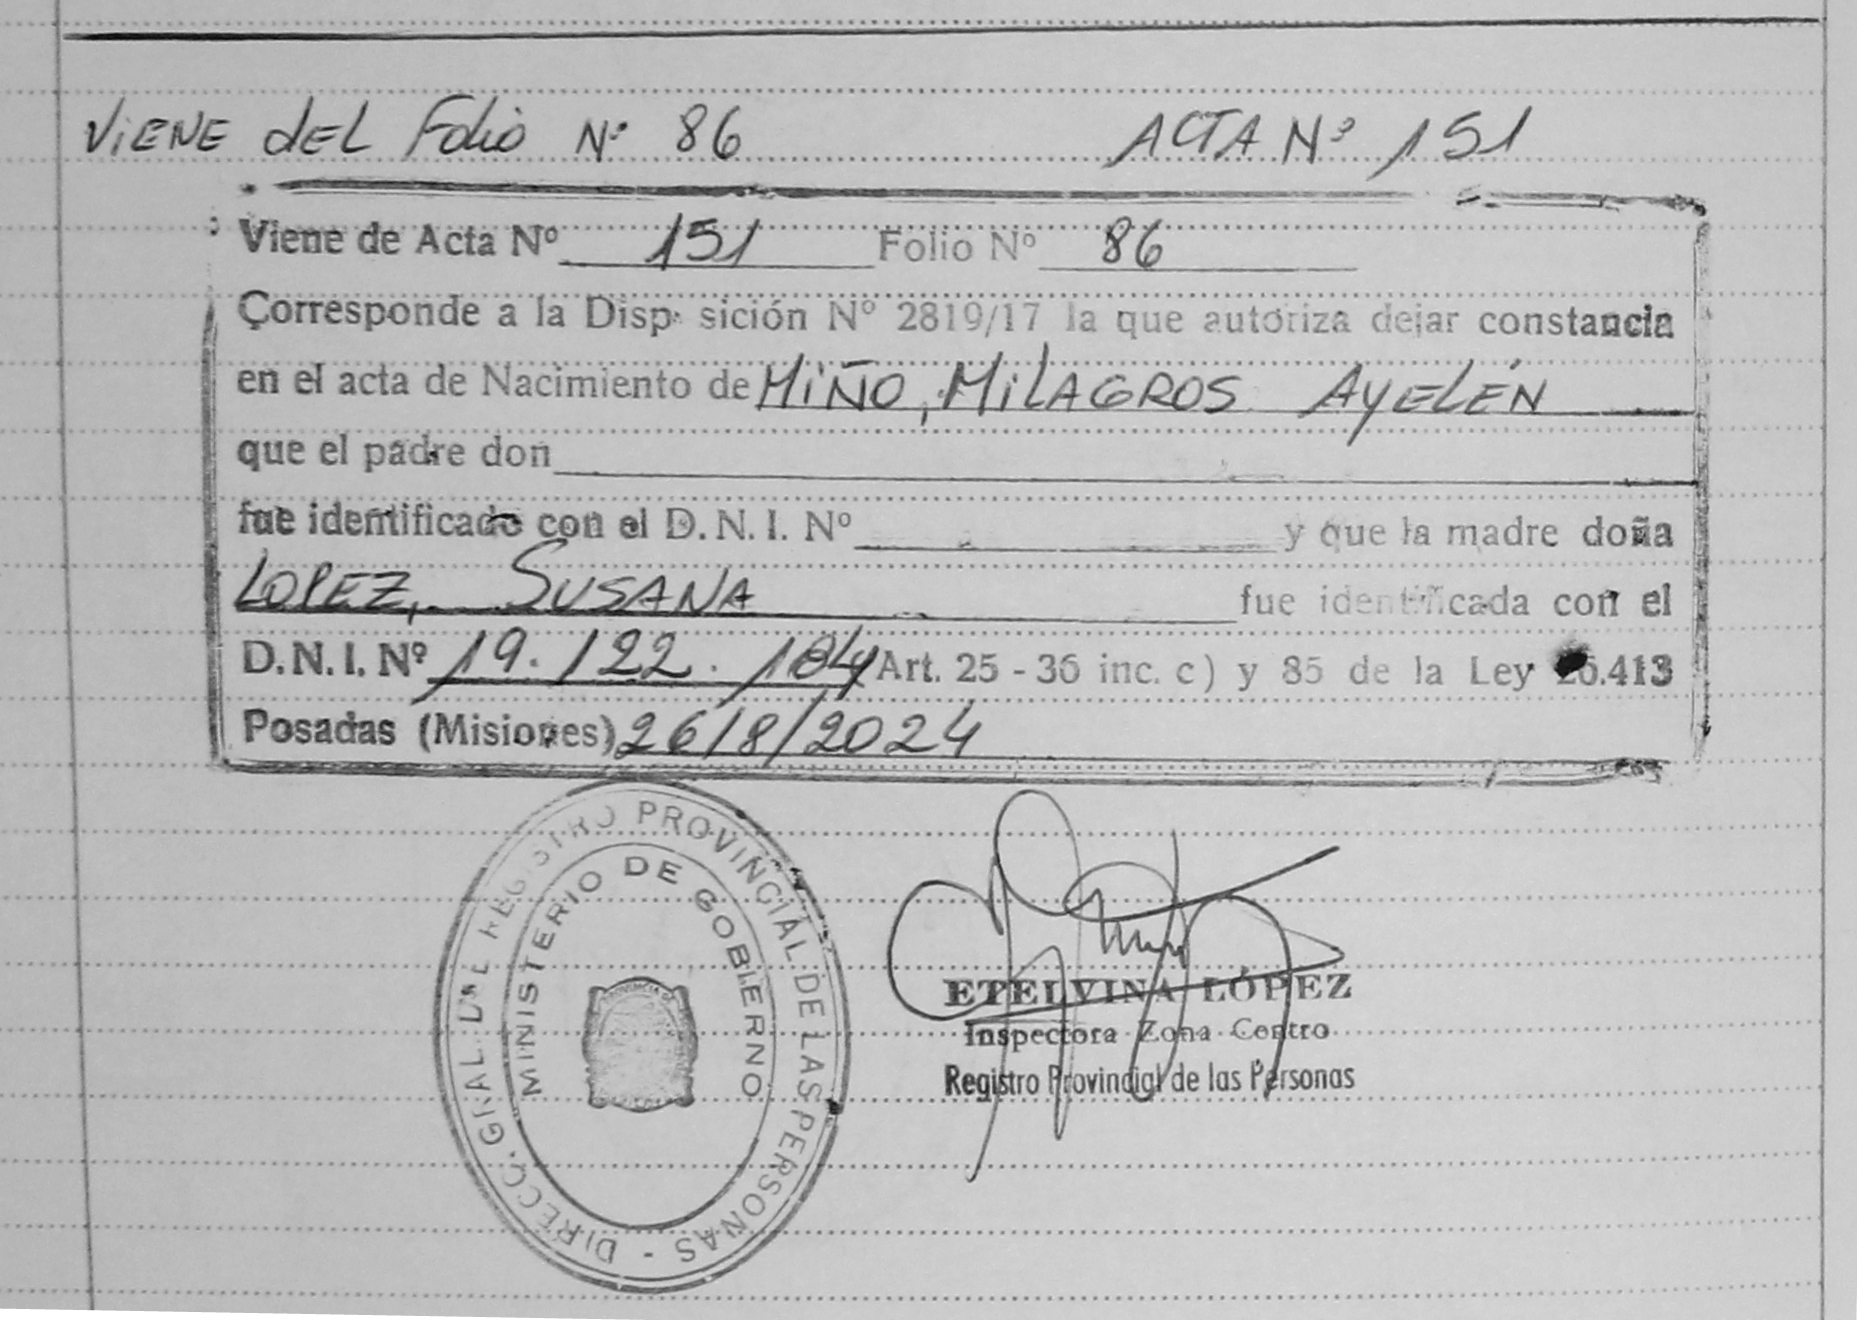 ViENE dEL Folio Nº 86 ACTA Nº 151
Viene de Acta Nº 151 Folio Nº 86
Corresponde a la Disp sición Nº 2819/17 la que autoriza dejar constancia
en el acta de Nacimiento de MiÑO, MiLAGROS AyELÉN
que el padre don
fue identificado con el D.N.I. Nº y que la madre doña
LOPEZ, SUSANA fue identificada con el
D.N.I. Nº 19.122.184 Art. 25 - 36 inc. c) y 85 de la Ley 26.413
Posadas (Misiones) 26/8/2024
DIRECC. GRAL DEL REGISTRO PROVINCIAL DE LAS PERSONAS -
MINISTERIO DE GOBIERNO
PROVINCIA DE
ETELVINA LÓPEZ
Inspectora Zona Centro
Registro Provincial de las Personas